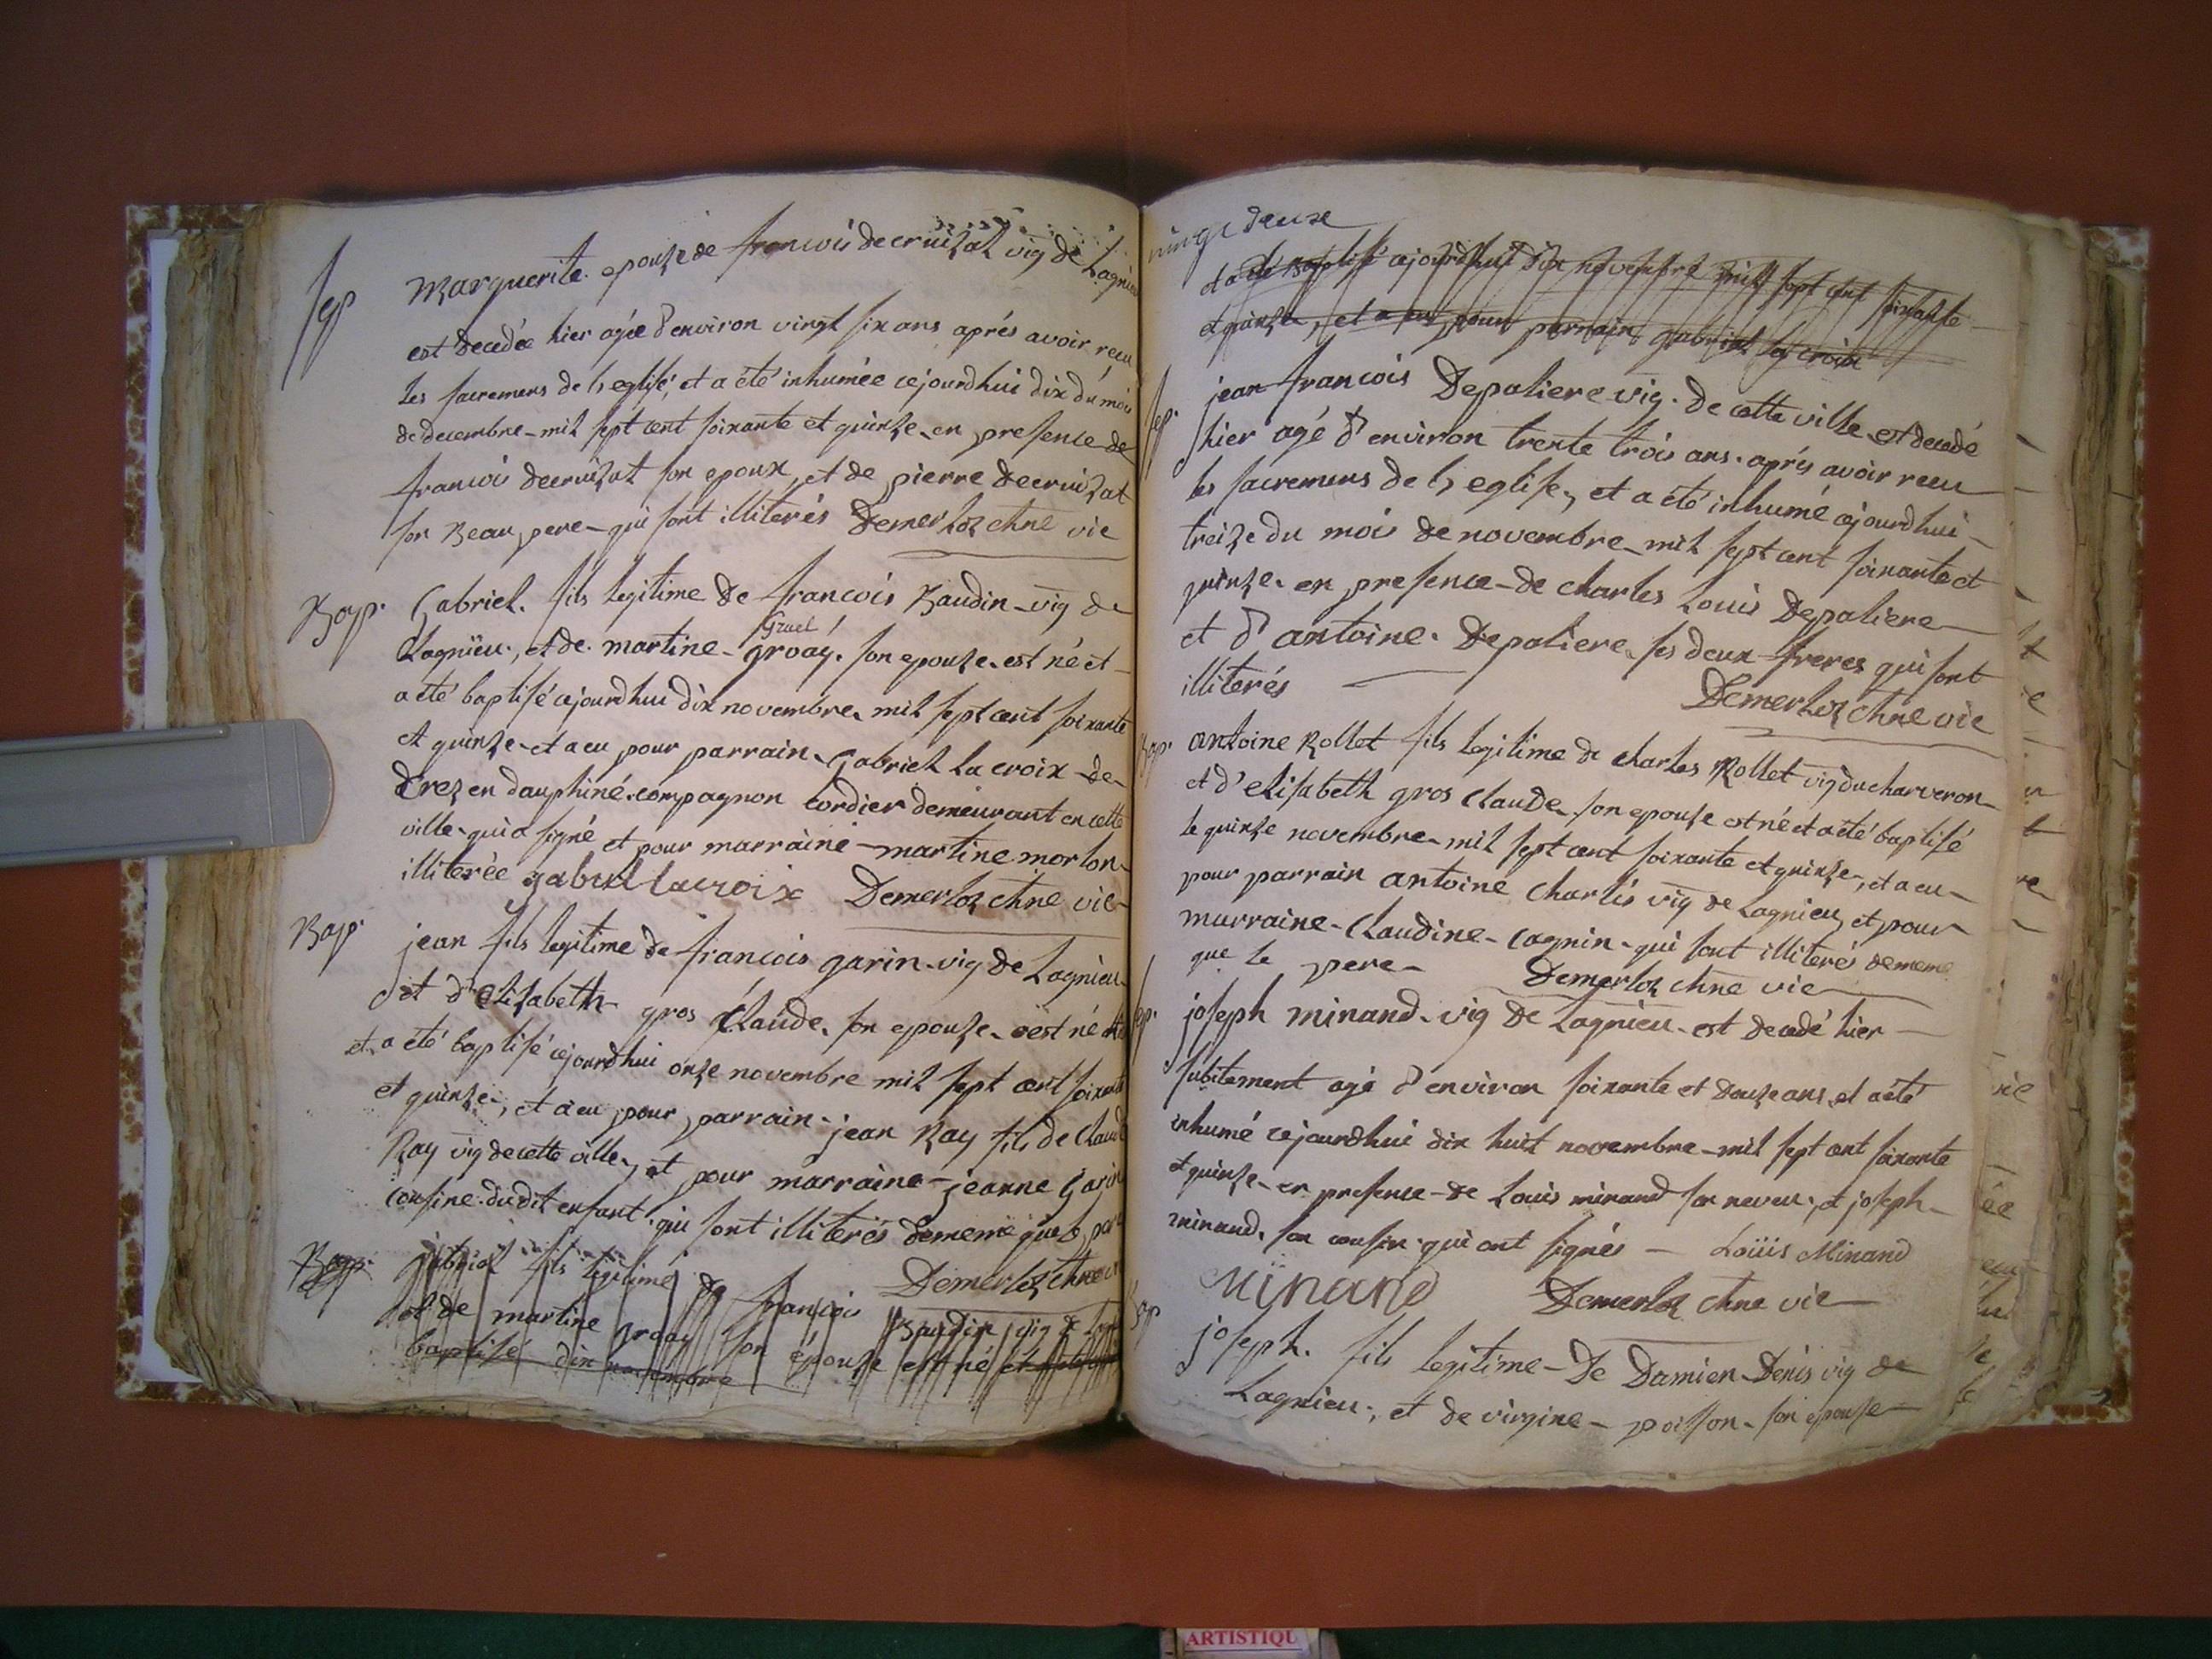 Sep
Marguerite epouze de francois decruizat vig de Lagnieu
est decedée hier agée d'environ vingt six ans aprés avoir reçu
les sacremens de l'eglise, et a été inhumée cejourdhui dix du mois
de decembre mil sept cent soixante et quinze en presence de
francois decruizat son epoux, et de pierre decruizat
son Beau pere qui sont illiterés Demerloz chne vic
Bap. Gabriel fils legitime de francois Baudin vig de
Gruel
Lagnieu, et de martine groay son epouze est né et
a été baptisé cejourdhui dix novembre mil sept cent soixante
et quinze et a eu pour parrain Gabriel la croix de
Crez en dauphiné compagnon cordier demeurant en cette
ville qui a signé et pour marraine martine morlon
illiterée gabriel lacroix Demerloz chne vic
Bap. jean fils legitime de francois garin vig de Lagnieu
et d'Elizabeth gros Claude son epouze est né
et a été baptisé cejourdhui onze novembre mil sept cent soixante
et quinze, et a eu pour parrain jean Ray fils de Claude
Ray vig de cette ville, et pour marraine jeanne Garin
cousine dudit enfant qui sont illiterés de meme que le pere
Demerloz chne vic
Bap. gabriel fils legitime de francois Baudin vig de
et de martine groay son epouze est né et
baptisé dix novembre
deuxe
et a été Baptisé cejourdhui dix novembre mill sept cent soixante
et quinze, et a eu pour parrain gabriel la croix
Sep. jean francois Depaliere vig. de cette ville est decedé
hier agé d'environ trente trois ans aprés avoir reçu
les sacremens de l'eglise, et a été inhumé cejourdhui
treize du mois de novembre mil sept cent soixante et
quinze en presence de charles Louis Depaliere
et d'antoine Depaliere ses deux freres qui sont
illiterés Demerloz chne vic
Bap. antoine Rollet fils legitime de charles Rollet vig du charveron
et d'elisabeth gros claude son epouse est né et a été baptisé
le quinze novembre mil sept cent soixante et quinze, et a eu
pour parrain antoine Charlis vig de Lagnieu, et pour
marraine Claudine Cagnin qui sont illiterés de meme
que le pere Demerloz chne vic
Sep. joseph minand vig de Lagnieu est decedé hier
subitement agé d'environ soixante et douze ans et a été
inhumé cejourdhui dix huit novembre mil sept cent soixante
et quinze en presence de Louis minand son neveu, et joseph
minand son cousin qui ont signés Loüis Minand
Minand Demerloz chne vic
Bap joseph fils legitime De Damien Denis vig de
Lagnieu, et de virgine poisson son epouse
ARTISTIQU